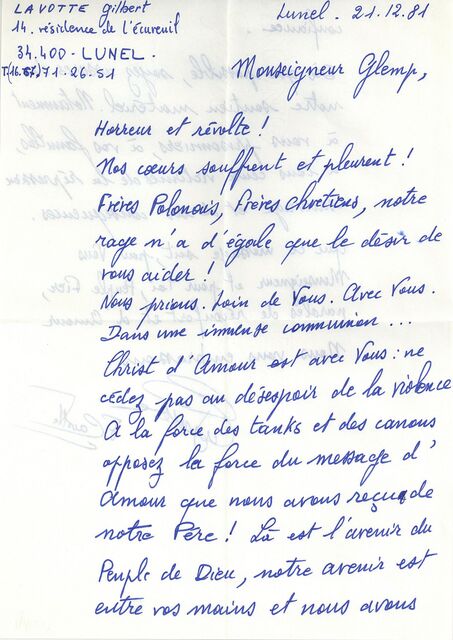 LAVOTTE Gilbert
14. résidence de l'Écureuil
34.400 - LUNEL.
T(16.67) 71-26-51
Lunel. 21.12.81
Monseigneur Glemp,
Horreur et révolte !
Nos cœurs souffrent et pleurent !
Frères Polonais, frères chrétiens, notre
rage n'a d'égale que le désir de
vous aider !
Nous prions. Loin de Vous. Avec Vous.
Dans une immense communion ...
Christ d'Amour est avec Vous : ne
cédez pas au désespoir de la violence
A la force des tanks et des canons
opposez la force du message d'
Amour que nous avons reçu de
notre Père ! Là est l'avenir du
Peuple de Dieu, notre avenir est
entre vos mains et nous avons